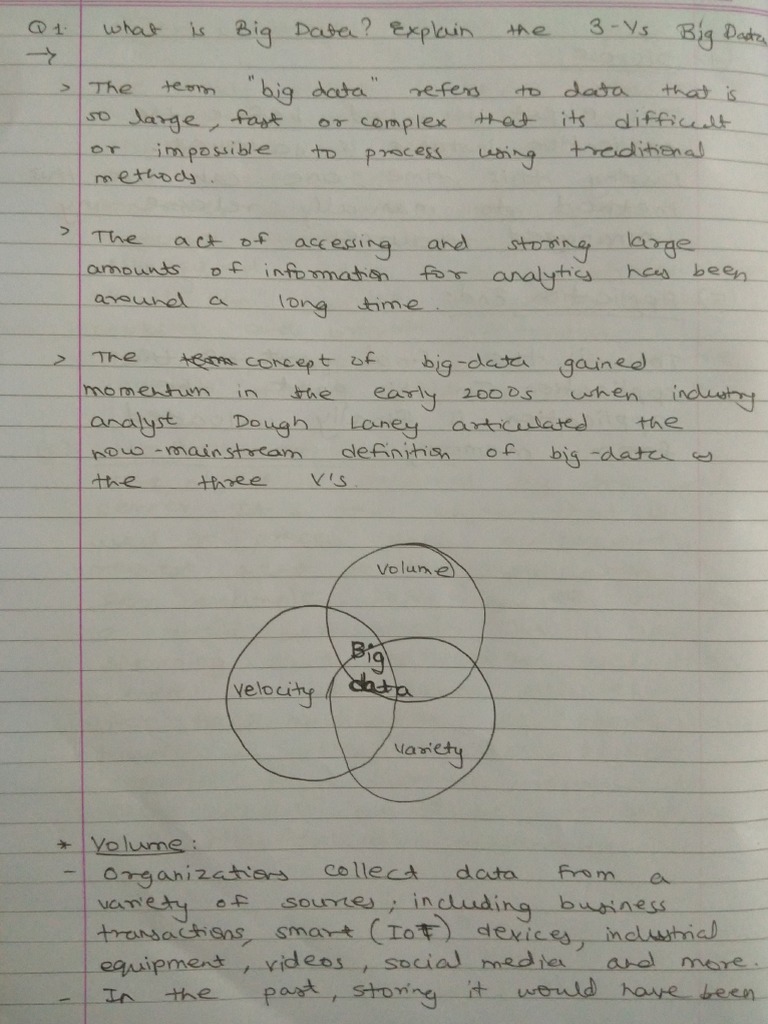 Q1. What is Big Data? Explain the 3-Vs Big Data
→
> The term "big data" refers to data that is
so large, fast or complex that its difficult
or impossible to process using traditional
methods.
> The act of accessing and storing large
amounts of information for analytics has been
around a long time.
> The term concept of big-data gained
momentum in the early 2000s when industry
analyst Dough Laney articulated the
now-mainstream definition of big-data as
the three V's.
volume
Big
velocity data
variety
* Volume:
- Organizations collect data from a
variety of sources, including business
transactions, smart (IoT) devices, industrial
equipment, videos, social media and more.
- In the past, storing it would have been